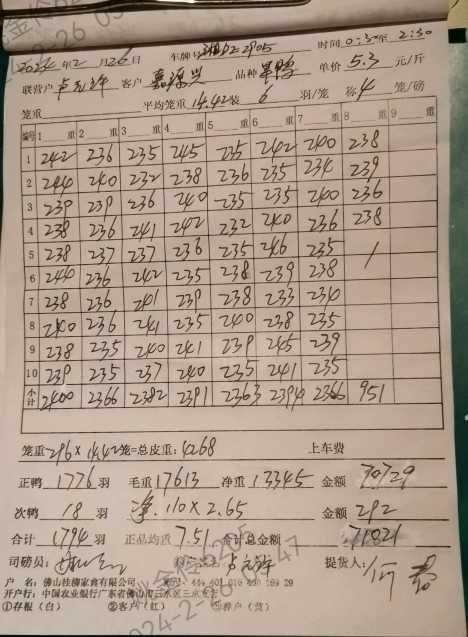 2024年2月26日 车牌 2905 时间 0:3 至 2:30
联营户 卢允许 客户 嘉源兴 品种 单价 5.3 元/斤
笼重 平均笼重 14.42 装 6 羽/笼 称 4 笼/磅
编号 1 重 2 重 3 重 4 重 5 重 6 重 7 重 8 重 9 重
1 242 236 235 245 235 242 240 238
2 244 240 232 238 236 235 234 239
3 239 239 236 240 235 235 240 236
4 238 236 241 242 232 240 236 238
5 238 237 237 236 235 246 235 /
6 240 236 242 235 238 239 238
7 238 236 241 239 238 233 234
8 240 236 241 235 240 238 235
9 238 235 240 241 239 245 239
10 239 235 237 240 235 241 235
小计 2400 2366 2382 2391 2363 2394 2366 951
笼重 296 × 14.42 笼=总皮重: 4268 上车费
正鸭 1776 羽 毛重 17613 净重 13345 金额 70729
次鸭 18 羽 净.110×2.65 金额 292
合计 1794 羽 正品均重 7.51 合计总金额 71021
司磅员: 卢允许 提货人: 何
户 名: 佛山桂柳家禽有限公司
开户行: 中国农业银行广东省佛山市三水区三水支行
①存根(白) ②客户(红) ③养户(黄)